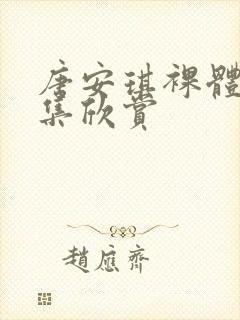 唐安琪裸體
集欣賞
趙應齊